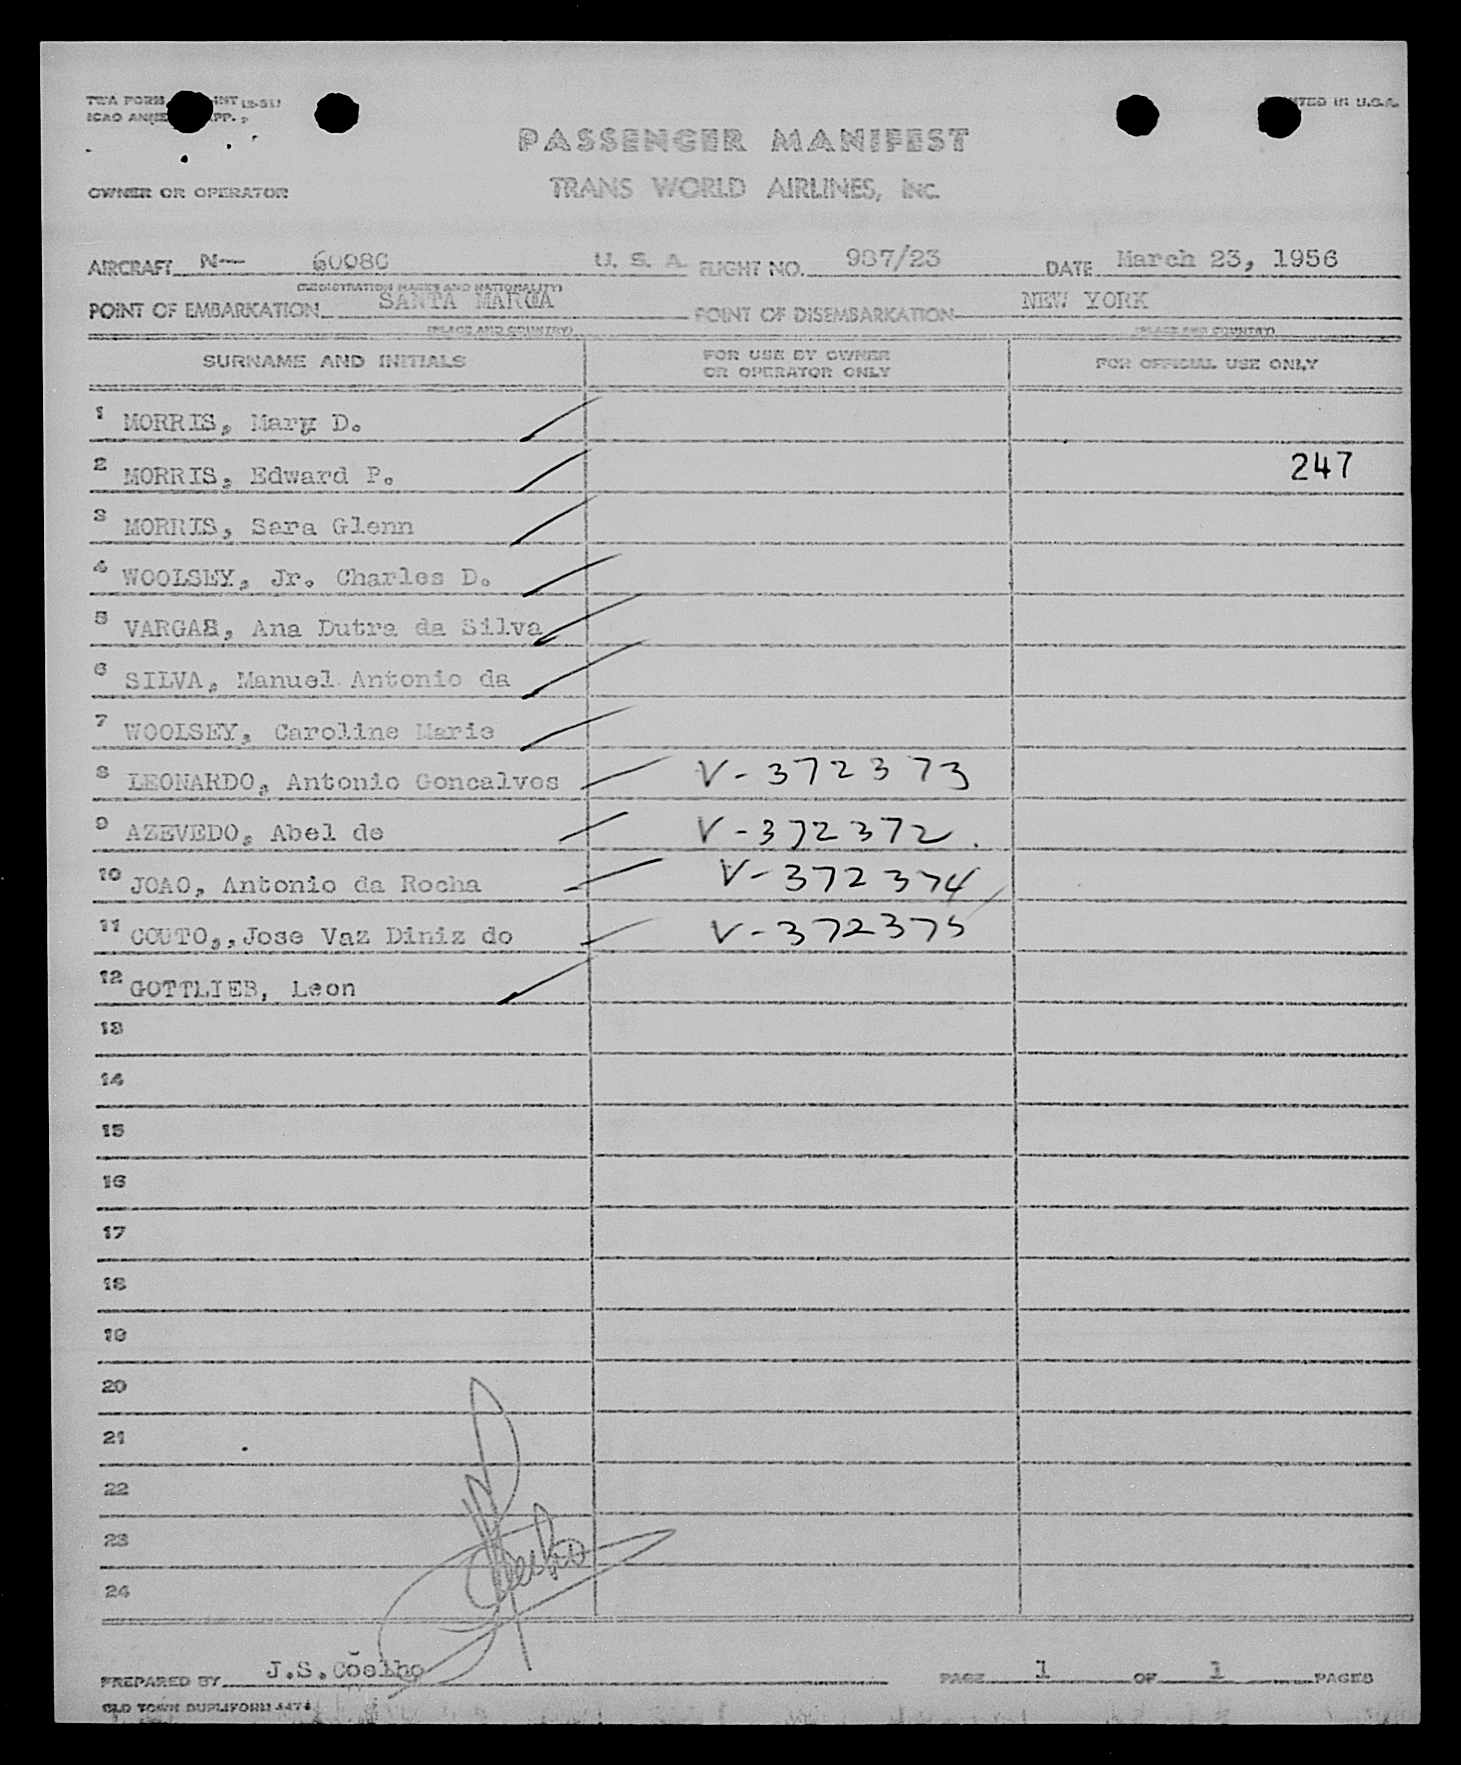 TWA FORM INT (2-51)
ICAO ANNEX APP.
PRINTED IN U.S.A.
PASSENGER MANIFEST
OWNER OR OPERATOR TRANS WORLD AIRLINES, INC.
AIRCRAFT N-- U. S. A. FLIGHT NO. 987/23 DATE March 23, 1956
(REGISTRATION MARKS AND NATIONALITY)
POINT OF EMBARKATION SANTA MARIA POINT OF DISEMBARKATION NEW YORK
(PLACE AND COUNTRY) (PLACE AND COUNTRY)
SURNAME AND INITIALS FOR USE BY OWNER OR OPERATOR ONLY FOR OFFICIAL USE ONLY
1 MORRIS, Mary D.
2 MORRIS, Edward P. 247
3 MORRIS, Sara Glenn
4 WOOLSEY, Jr. Charles D.
5 VARGAS, Ana Dutra da Silva
6 SILVA, Manuel Antonio da
7 WOOLSEY, Caroline Marie
8 LEONARDO, Antonio Goncalves V-372373
9 AZEVEDO, Abel de V-372372.
10 JOAO, Antonio da Rocha V-372374
11 COUTO,,Jose Vaz Diniz do V-372375
12 GOTTLIEB, Leon
13
14
15
16
17
18
19
20
21
22
23
24
PREPARED BY J.S.Coelho PAGE 1 OF 1 PAGES
OLD TOWN DUPLIFORM